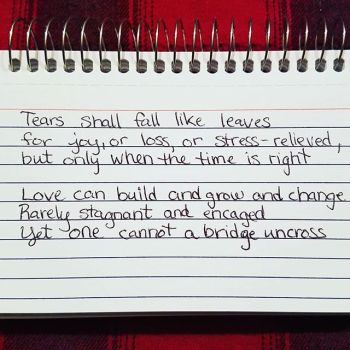 Tears shall fall like leaves
for joy, or loss, or stress-relieved,
but only when the time is right
Love can build and grow and change
Rarely stagnant and encaged
Yet one cannot a bridge uncross